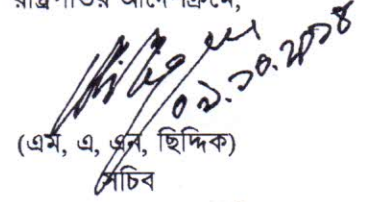 রাষ্ট্রপতির আদেশক্রমে,
০২.১০.২০১৪
(এম, এ, এন, ছিদ্দিক)
সচিব